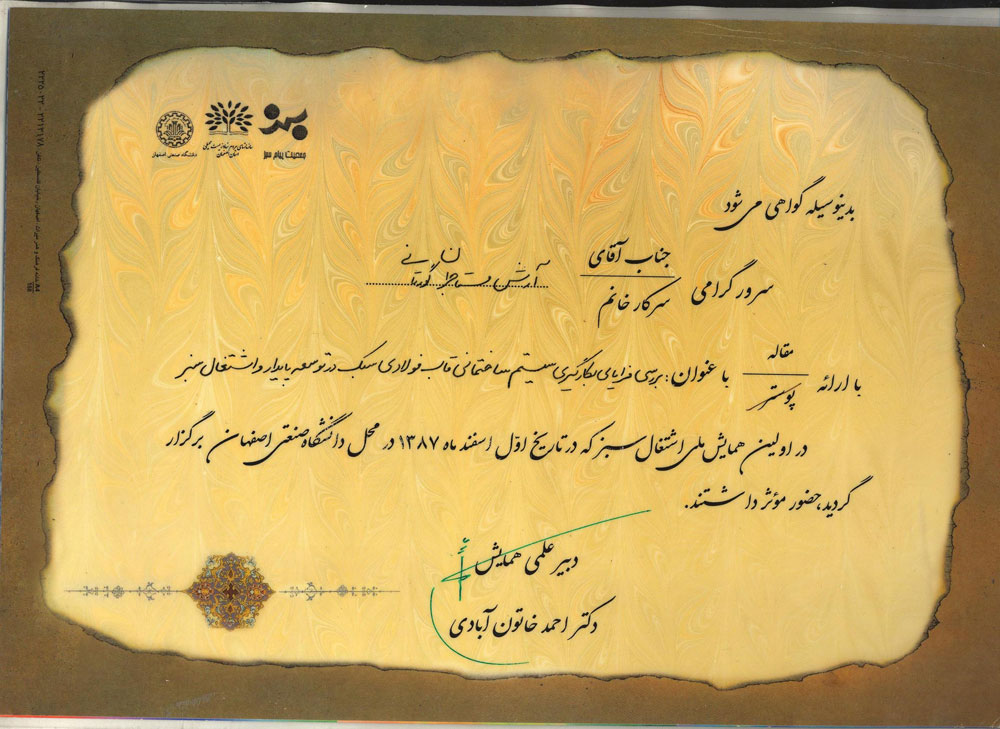 جمعیت پیام سبز
استان اصفهان
دانشگاه صنعتی اصفهان
بدینوسیله گواهی می شود
سرور گرامی جناب آقای
سرکار خانم
آرش
با ارائه مقاله
پوستر
با عنوان: بررسی مزایای بکارگیری سیستم ساختمانی قاب فولادی سبک در توسعه پایدار و اشتغال سبز
در اولین همایش ملی اشتغال سبز که در تاریخ اوّل اسفند ماه ۱۳۸۷ در محل دانشگاه صنعتی اصفهان برگزار
گردید، حضور مؤثر داشتند.
دبیر علمی همایش
دکتر احمد خاتون آبادی